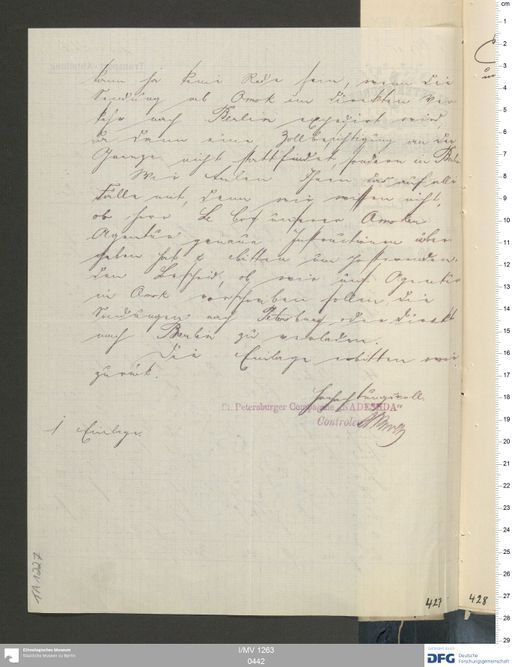 kann ja keine Rede sein, wenn die
Sendung ab Omsk im direkten Ver
kehr nach Berlin expedirt wird
da dann eine Zollbesichtigung an der
Grenze nicht stattfindet, sondern in Berlin
Wir theilen Ihnen das auf alle
Fälle mit, denn wir wissen nicht,
ob Herr unserer Omsker
Agentur genaue Instructionen über
geben hat & bitten um
den Bescheid, ob wir uns. Agentur
in Omsk vorschreiben sollen, die
Sendungen nach Petersburg oder direkt
nach Berlin zu verladen.
Die Einlage erbitten wir
zurück.
Hochachtungsvoll
St. Petersburger Compagnie "NADESHDA"
Controle
1 Einlage.
1A 1227
427
428
Ethnologisches Museum
Staatliche Museen zu Berlin
I/MV 1263
0442
DFG
Deutsche
Forschungsgemeinschaft